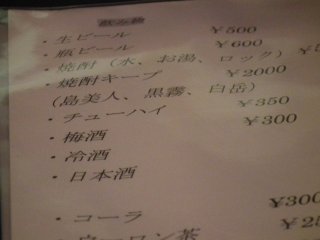 飲み物
・生ビール ￥500
・瓶ビール ￥600
・焼酎（水、お湯、ロック） ￥5
・焼酎キープ ￥2000
（島美人、黒霧、白岳）
・チューハイ ￥350
・梅酒 ￥300
・冷酒
・日本酒
・コーラ ￥300
ウーロン茶 ￥25